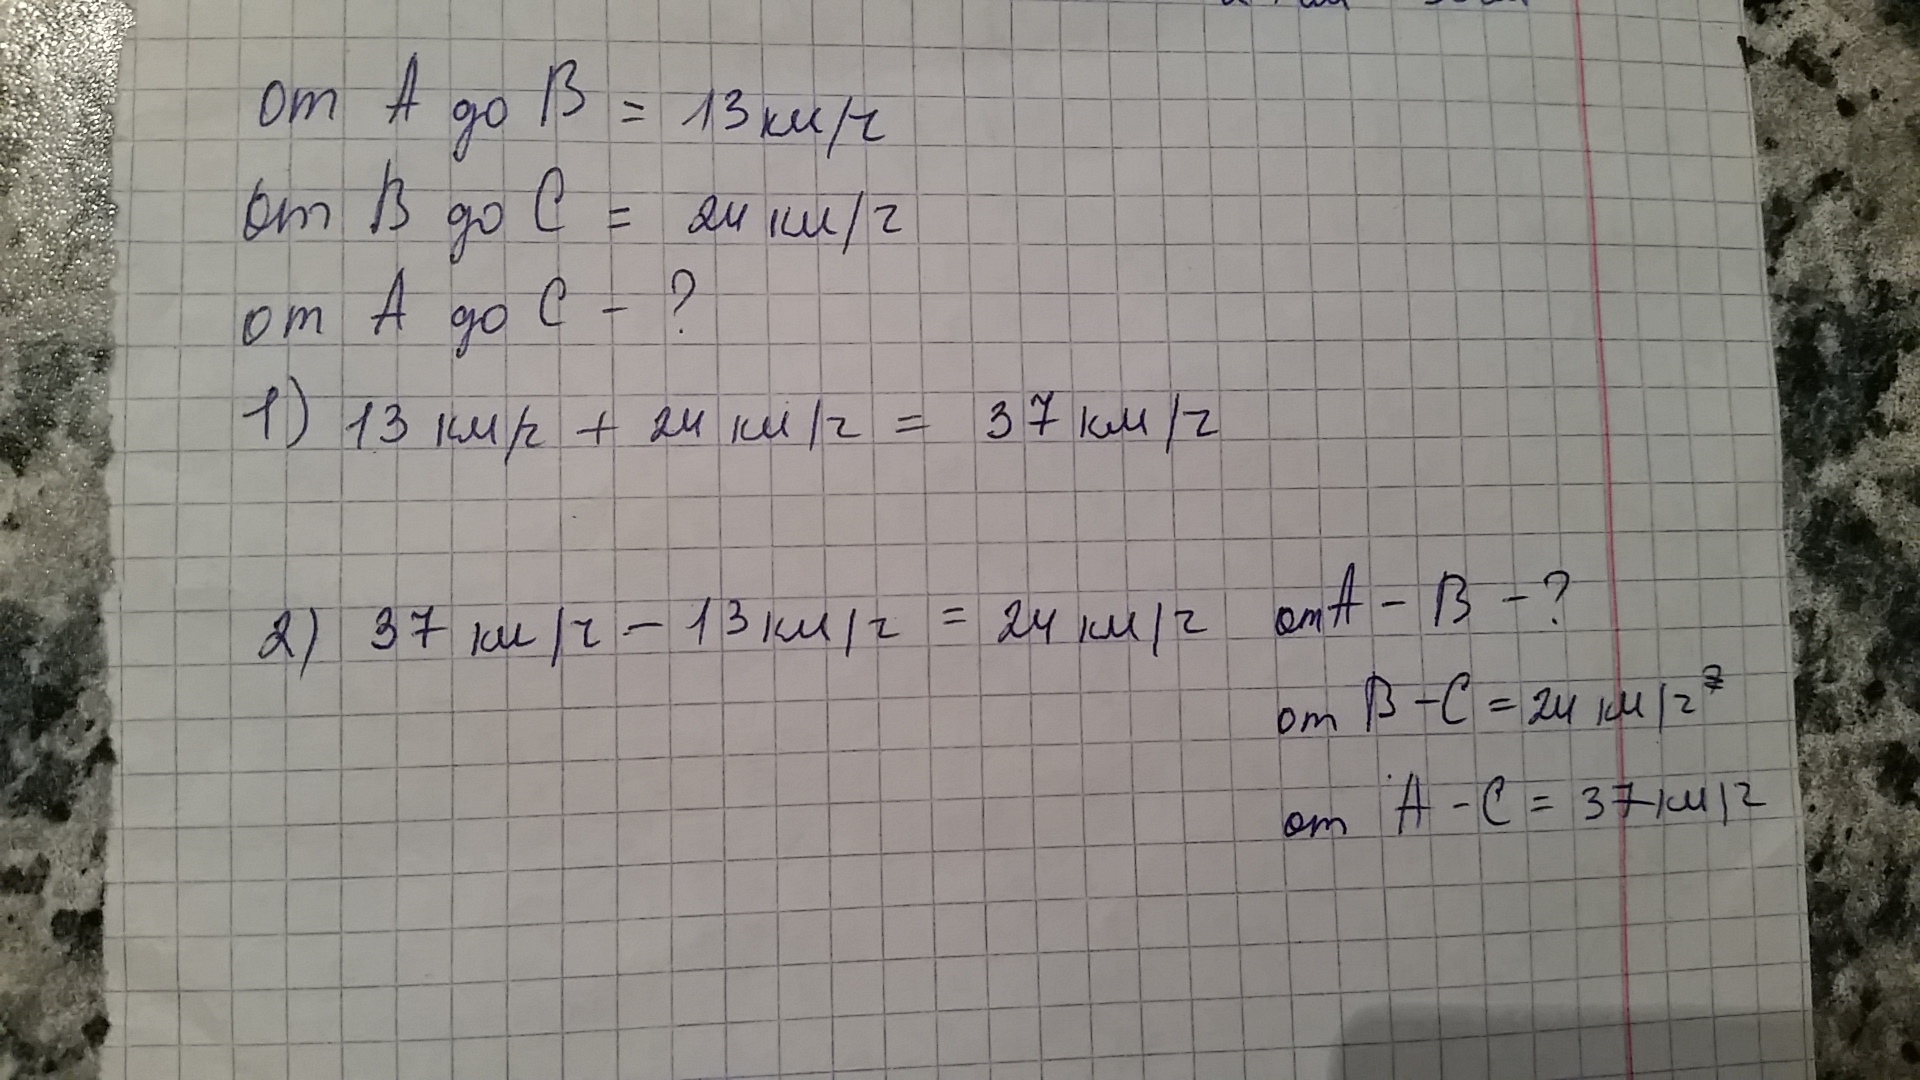 от А до В = 13 км/ч
от В до С = 24 км/ч
от А до С - ?
1) 13 км/ч + 24 км/ч = 37 км/ч
2) 37 км/ч - 13 км/ч = 24 км/ч
от А - В - ?
от В - С = 24 км/ч
от А - С = 37 км/ч